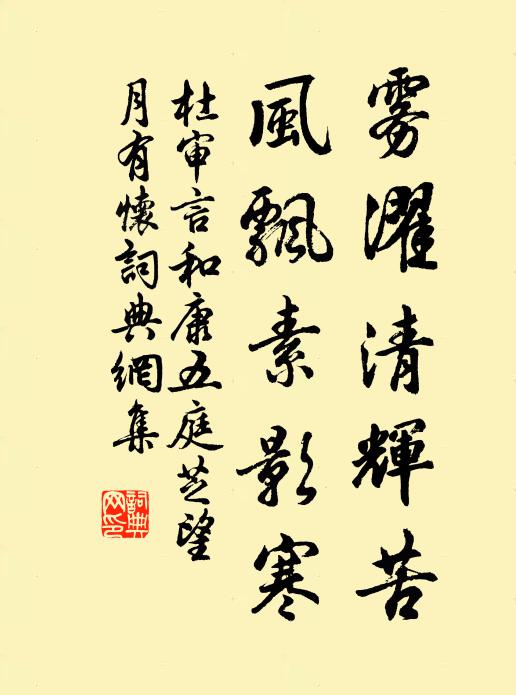 雾濯清輝苦
風飄素影寒
杜审言和康五庭芝望
月有懷詞典網集
詞典
网印